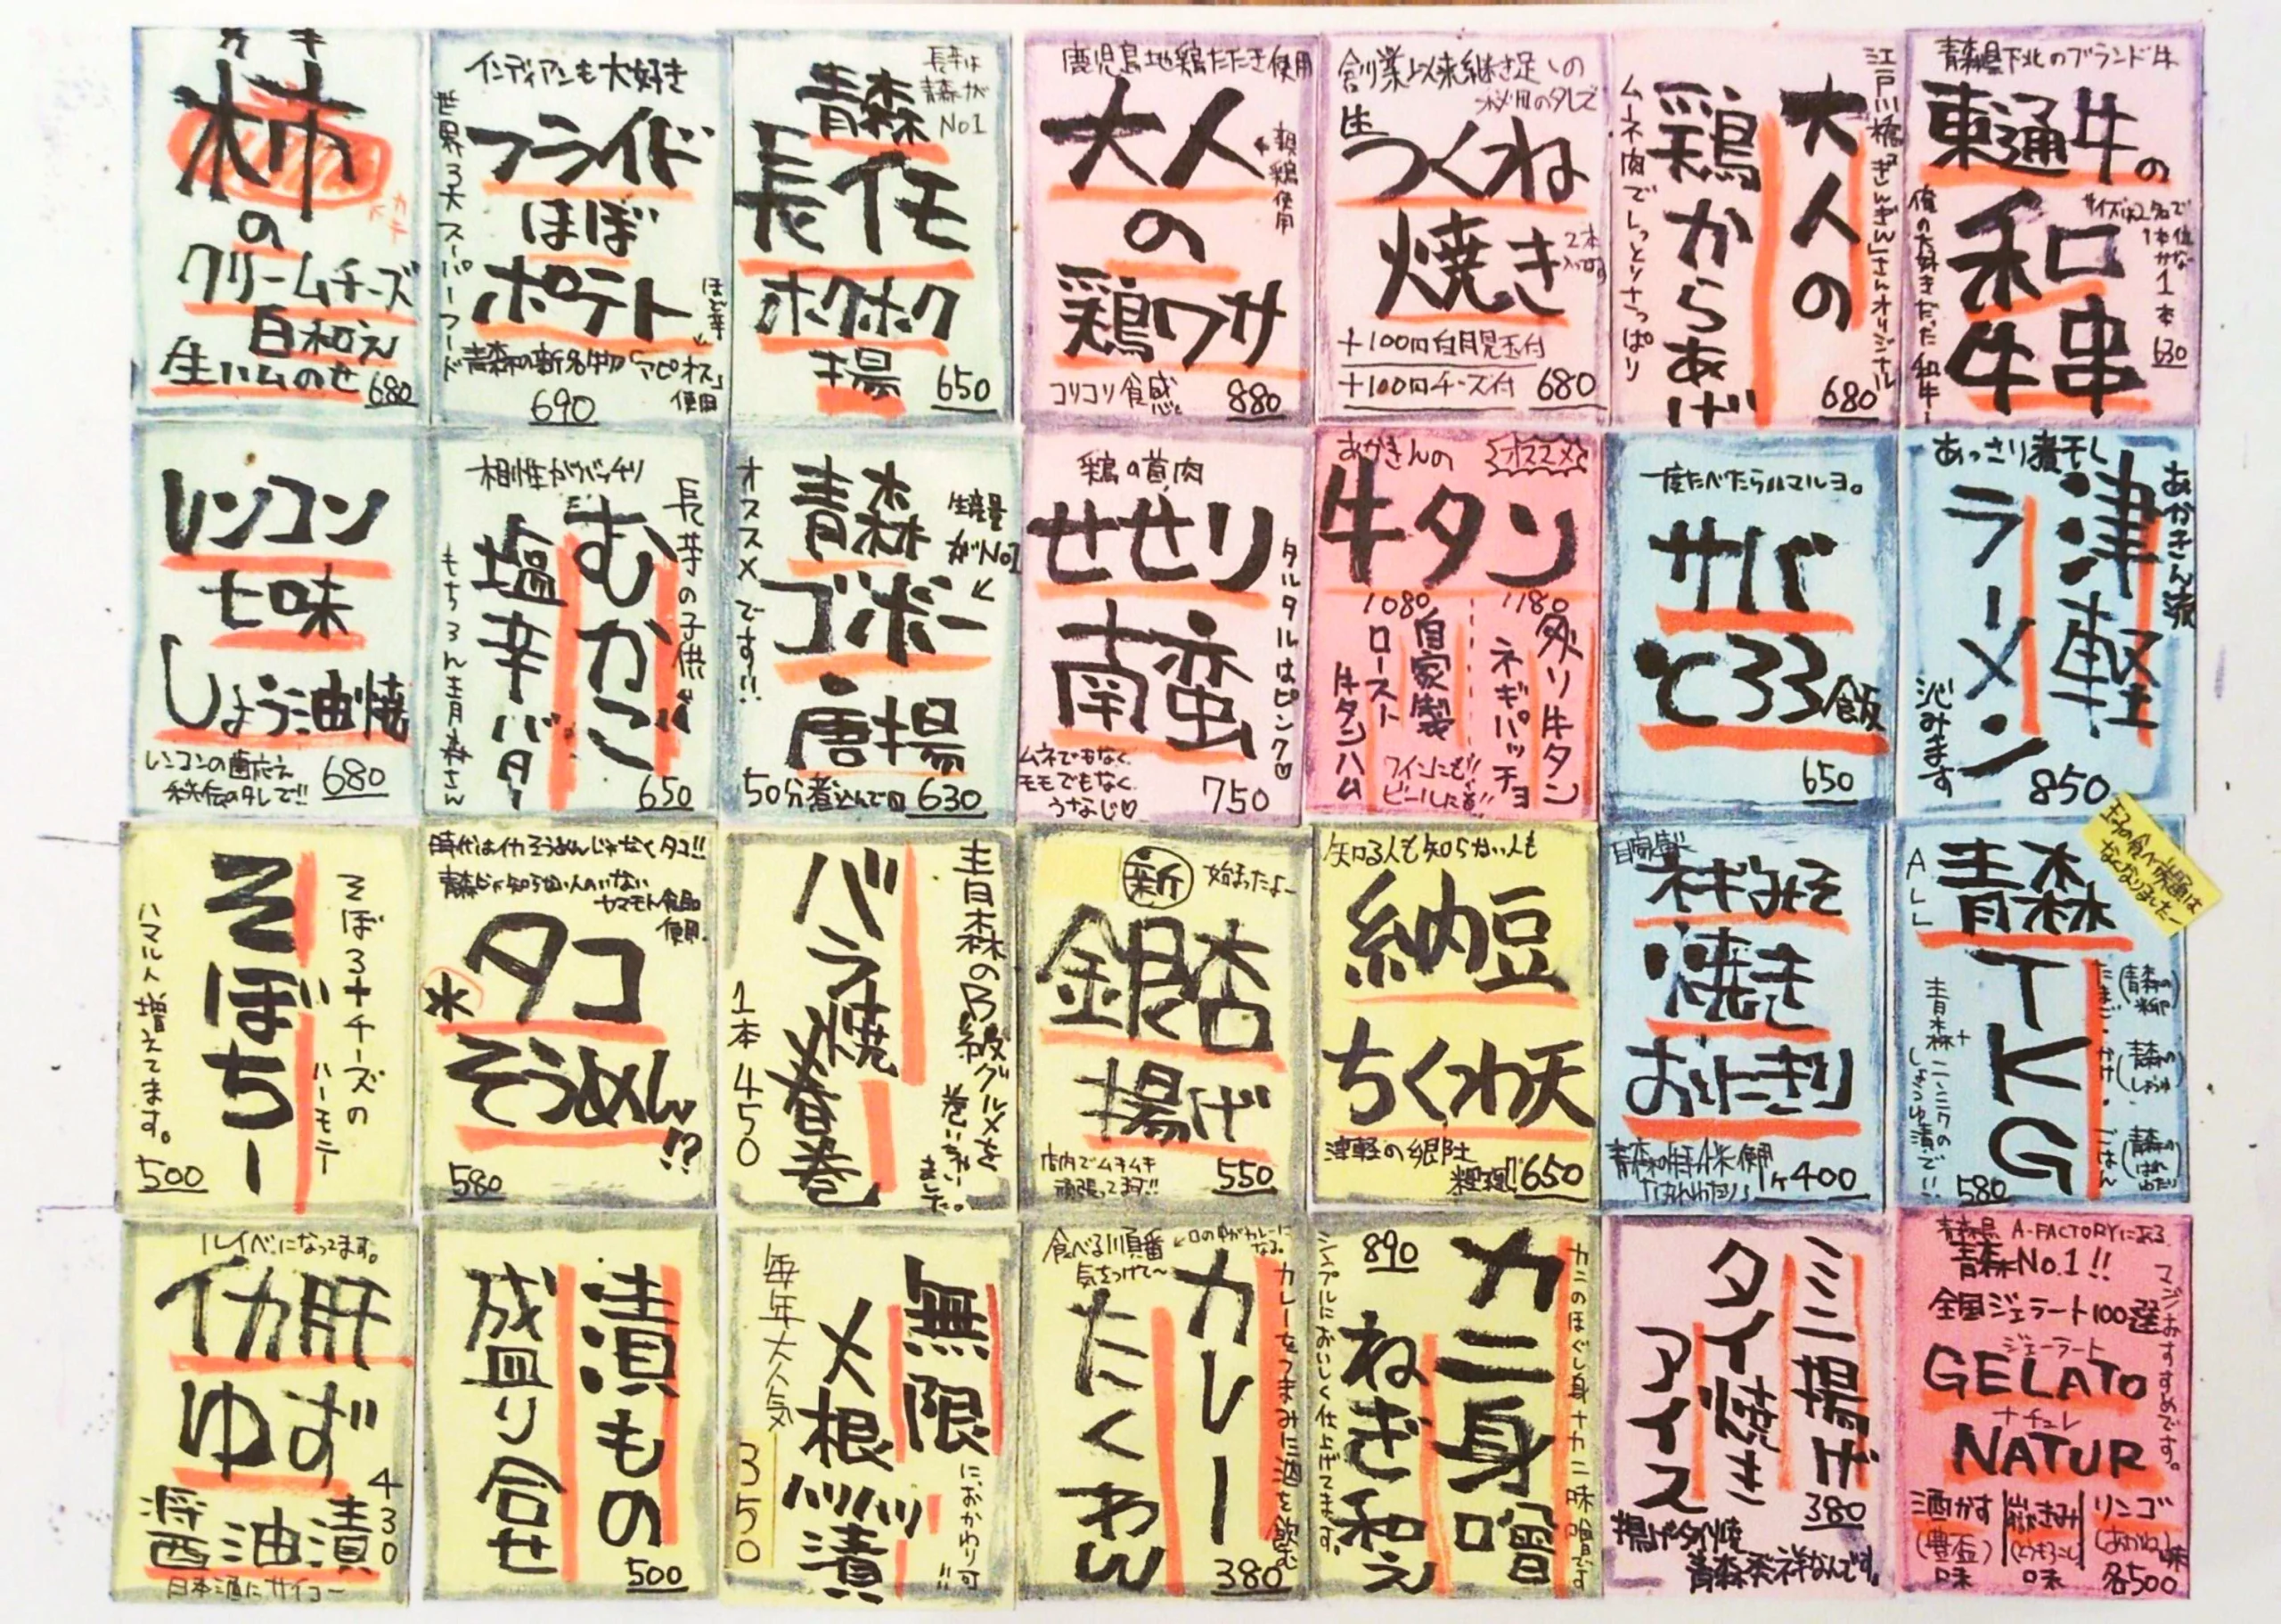 カキ
柿
の
クリームチーズ
白和え
生ハムのせ 680
インディアンも大好き
世界3大スーパーフード
フライド
ほぼ
ポテト
ほど芋
青森の新名物「アピオス」
使用
690
長芋は
青森が
No1
青森
長イモ
ホクホク
揚
650
鹿児島地鶏たたき使用
大人
の
鶏ワサ
親鶏使用
コリコリ食感
880
創業以来継ぎ足しの
秘伝のタレで
生
つくね
焼き
2本
+100円白月見玉付
+100円チーズ付 680
江戸川橋「ぎんぎん」さんオリジナル
大人の
鶏からあげ
ムネ肉でしっとりさっぱり
680
青森県下北のブランド牛
東通牛の
和牛串
俺の大好きだった和牛!
1本
630
レンコン
七味
しょう油焼
レンコンの歯応え
秘伝のタレで!! 680
相性がバッチリ
長芋の子供
むかご
塩辛バター
もちろん青森さん
650
オススメです!!
青森
ゴボー
唐揚
生産量
がNo1
50分煮込んで 630
鶏の首肉
せせり
南蛮
タルタルはピンク♡
ムネでもなく
モモでもなく
うなじ♡
750
あかきんの
オススメ
牛タン
1080
自家製
ロースト
牛タンハム
1180
炙り牛タン
ネギパッチョ
ワインにも!!
ビールにも!!
一度たべたらハマルヨ。
サバ
℃33飯
650
あっさり煮干し
あかきん流
津軽
ラーメン
沁みます
850
そぼろ+チーズの
ハーモニー
そぼちー
ハマル人増えてます。
500
時代はイカそうめんじゃなくタコ!!
青森じゃ知らない人のいない
ヤマモト食品
使用
水タコ
そうめん!?
580
青森のB級グルメを
巻いちゃい
ました。
バラ焼
春巻
1本450
新
始まったよー
銀杏
揚げ
店内でムキムキ
頑張ってます!!
550
知る人も知らない人も
納豆
ちくわ天
津軽の郷土
料理!! 650
自家製
ネギみそ
焼き
おにぎり
青森の特A米使用
「はれわたり」 1ヶ400
玉子の食べ放題は
なくなりましたー
ALL
青森
TKG
たまご・かけ・ごはん
(青森の卵)
(青森のしょうゆ)
(青森のはれわたり)
青森+ニンニクの
しょうゆ漬で!!
580
ルイベになってます。
イカ肝
ゆず
醤油漬
430
日本酒にサイコー
漬もの
盛り合せ
500
無限
大根
ハリハリ
漬
毎年大人気
350
におかわり可!!
食べる順番
気をつけて〜
口の中がカレーに
なる。
カレー
たくわん
カレーをつまみに酒を飲む
380
890
カニ身
ねぎ和え
カニのほぐし身+カニ味噌です
シンプルにおいしく仕上げてます。
ミニ揚げ
タイ焼き
アイス
380
揚げタイ焼
青森発祥なんです。
青森県 A-FACTORYにある
青森No.1!!
全国ジェラート100選
ジェラート
GELATO
ナチュレ
NATUR
マジおすすめです。
酒かす
(豊盃)
味
嶽きみ
(とうもろこし)
味
リンゴ
(あかね)味
各500